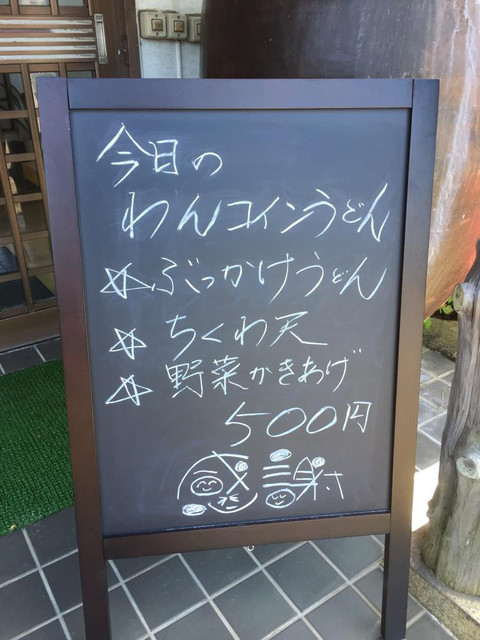 今日の
わんコインうどん
☆ぶっかけうどん
☆ちくわ天
☆野菜かきあげ
500円